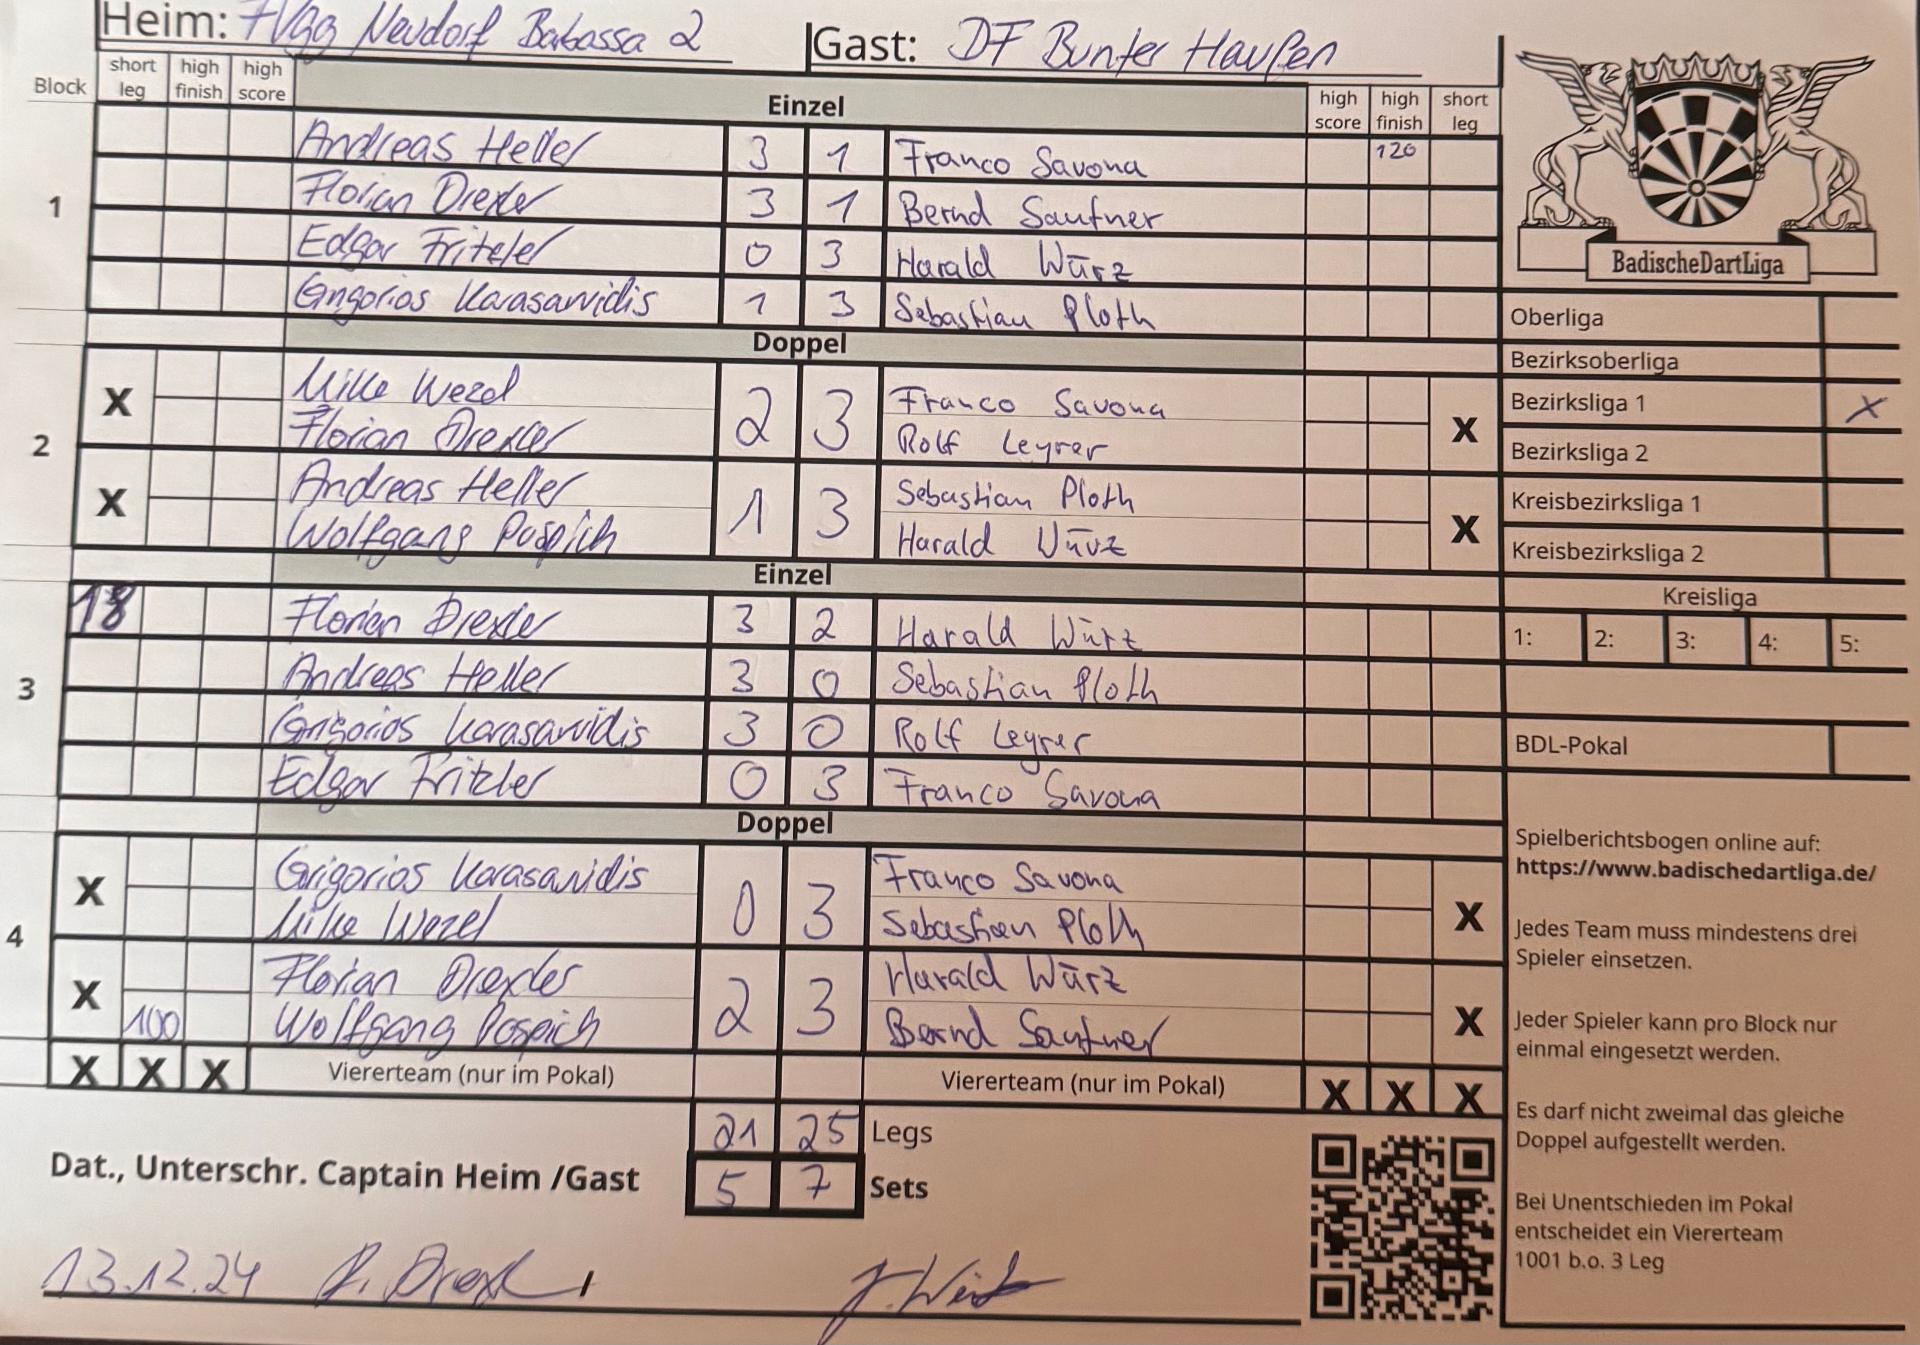 Heim: FVgg Neudorf Babassa 2 Gast: DF Bunter Haufen
Block short leg high finish high score Einzel high score high finish short leg
1
Andreas Heller 3 1 Franco Savona 120
Florian Drexler 3 1 Bernd Saufner
Edgar Fritzler 0 3 Harald Würz
Grigorios Karasavvidis 1 3 Sebastian Ploth
Doppel
2
X Mike Wezel 2 3 Franco Savona X
Florian Drexler Rolf Leyrer
X Andreas Heller 1 3 Sebastian Ploth X
Wolfgang Pospich Harald Würz
Einzel
3
18 Florian Drexler 3 2 Harald Würz
Andreas Heller 3 0 Sebastian Ploth
Grigorios Karasavvidis 3 0 Rolf Leyrer
Edgar Fritzler 0 3 Franco Savona
Doppel
4
X Grigorios Karasavidis 0 3 Franco Savona X
Mike Wezel Sebastian Ploth
X Florian Drexler 2 3 Harald Würz X
100 Wolfgang Pospich Bernd Saufner
X X X Viererteam (nur im Pokal) Viererteam (nur im Pokal) X X X
21 25 Legs
5 7 Sets
Dat., Unterschr. Captain Heim /Gast
13.12.24
BadischeDartLiga
Oberliga
Bezirksoberliga
Bezirksliga 1 X
Bezirksliga 2
Kreisbezirksliga 1
Kreisbezirksliga 2
Kreisliga
1: 2: 3: 4: 5:
BDL-Pokal
Spielberichtsbogen online auf:
https://www.badischedartliga.de/
Jedes Team muss mindestens drei
Spieler einsetzen.
Jeder Spieler kann pro Block nur
einmal eingesetzt werden.
Es darf nicht zweimal das gleiche
Doppel aufgestellt werden.
Bei Unentschieden im Pokal
entscheidet ein Viererteam
1001 b.o. 3 Leg